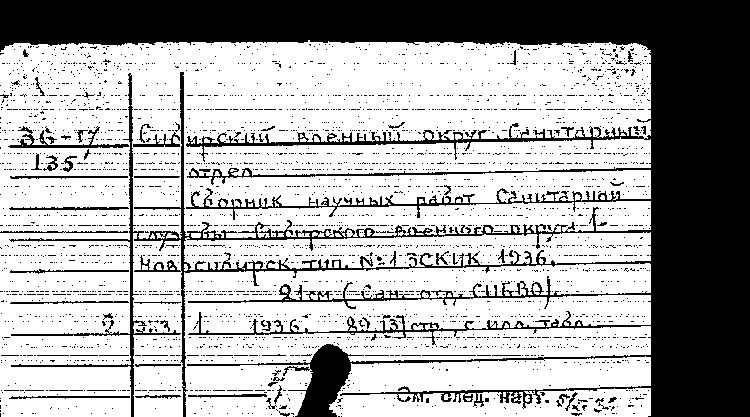 36-17 Сибирский военный округ. Санитарный
135 отдел
Сборник научных работ Санитарной
службы Сибирского военного округа. 1-
Новосибирск, тип. №1 ЗСКИК, 1936.
21см. (Сан. отд. СИБВО).
2 экз. 1. 1936. 89, [3] стр., с илл., табл.
См. след. карт.